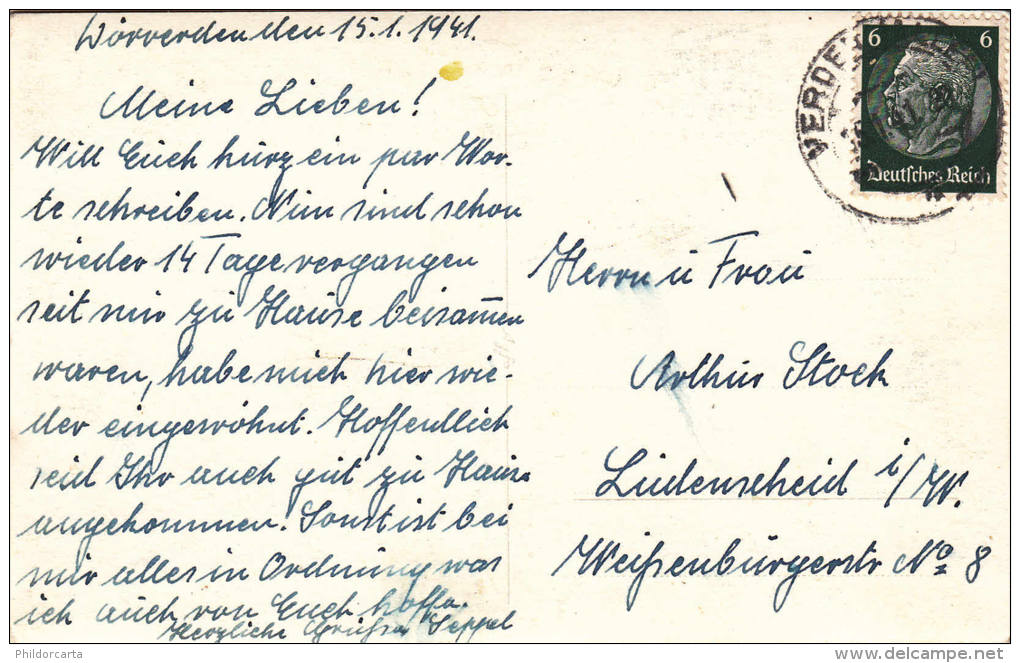 Dörverden den 15.1.1941.
Meine Lieben!
Will Euch kurz ein par Wor-
te schreiben. Nun sind schon
wieder 14 Tage vergangen
seit wir zu Hause beisam̄en
waren, habe mich hier wie-
der eingewöhnt. Hoffentlich
seid Ihr auch gut zu Hause
angekommen. Sonst ist bei
mir alles in Ordnung was
ich auch von Euch hoffe.
Herzliche Grüße Seppel
6 6
Deutsches Reich
VERDEN
Herrn u Frau
Arthur Stock
Lüdenscheid i/W.
Weißenburgerstr No 8
Phildorcarta
delcampe.net